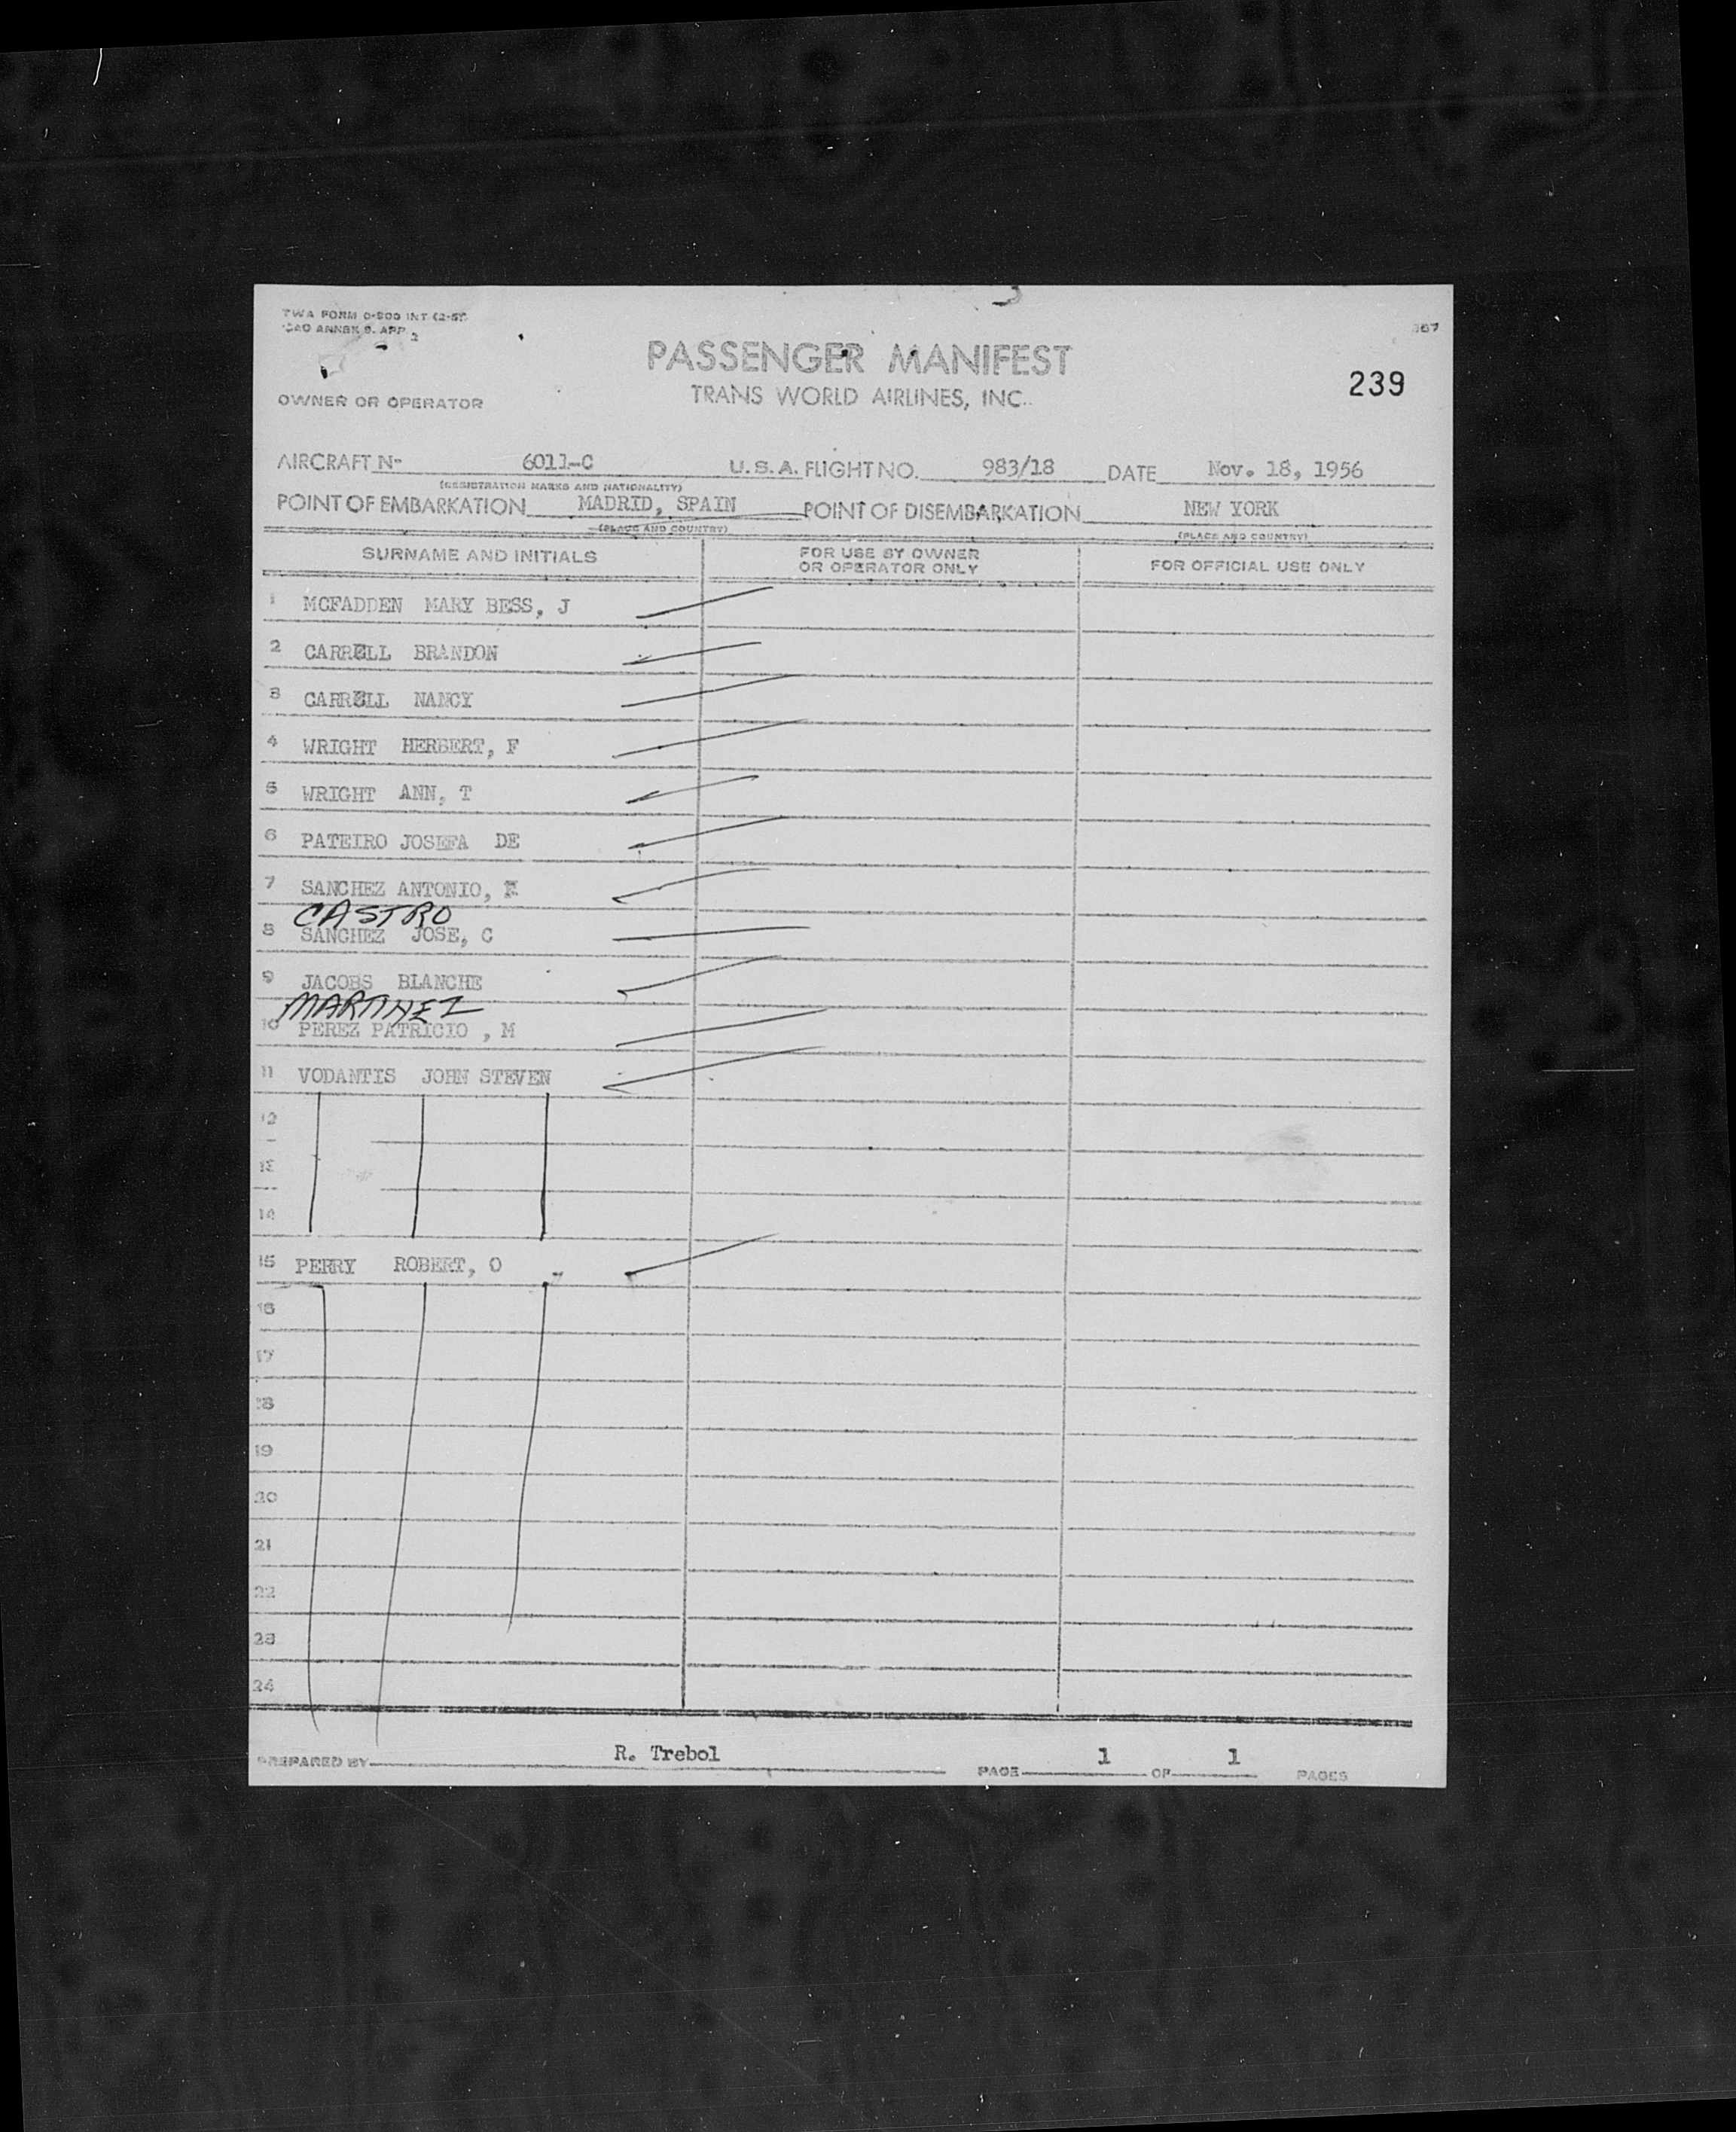 TWA FORM 0-800 INT (2-5
ICAO ANNEX 9. APP 2
367
PASSENGER MANIFEST
239
TRANS WORLD AIRLINES, INC.
OWNER OR OPERATOR
AIRCRAFT N- 6011-C U.S.A. FLIGHT NO. 983/18 DATE Nov. 18, 1956
(REGISTRATION MARKS AND NATIONALITY)
POINT OF EMBARKATION MADRID, SPAIN POINT OF DISEMBARKATION NEW YORK
(PLACE AND COUNTRY) (PLACE AND COUNTRY)
SURNAME AND INITIALS FOR USE BY OWNER OR OPERATOR ONLY FOR OFFICIAL USE ONLY
1 MCFADDEN MARY BESS, J
2 CARRELL BRANDON
3 CARRELL NANCY
4 WRIGHT HERBERT, F
5 WRIGHT ANN, T
6 PATEIRO JOSEFA DE
7 SANCHEZ ANTONIO,
CASTRO
8 SANCHEZ JOSE, C
9 JACOBS BLANCHE
MARTINEZ
10 PEREZ PATRICIO , M
11 VODANTIS JOHN STEVEN
12
13
14
15 PERRY ROBERT, O
16
17
18
19
20
21
22
23
24
PREPARED BY R. Trebol PAGE 1 OF 1 PAGES